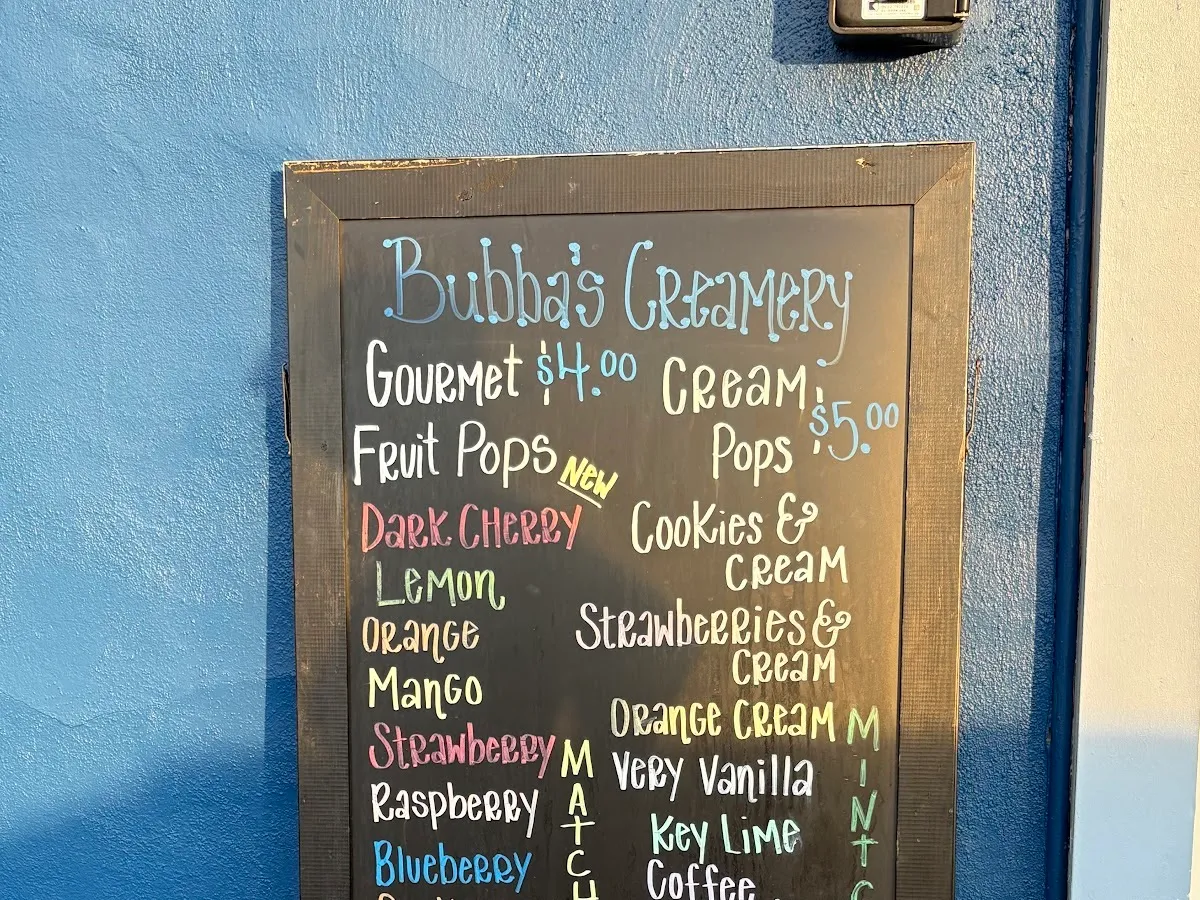 Bubba's Creamery
Gourmet $4.00
Fruit Pops New
Dark Cherry
Lemon
Orange
Mango
Strawberry
Raspberry
Blueberry
MATCH
Cream
$5.00
Pops
Cookies &
Cream
Strawberries &
Cream
Orange Cream
Very Vanilla
Key Lime
Coffee
MINT